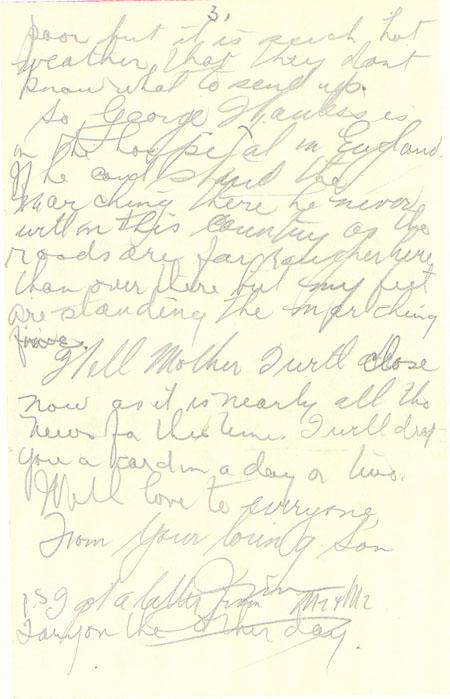 3.
poor but it is such hot
weather that they dont
know what to send up.
So George is
in the hospital in England.
If he cant stand the
marching there he never
will in this country as the
roads are far rougher here
than over there but my feet
are standing the marching
fine.
Well Mother I will close
now as it is nearly all the
news for this time. I will drop
you a card in a day or two.
With love to everyone
From your loving Son
Jim
P.S I got a letter from Mr & Mrs
the other day.